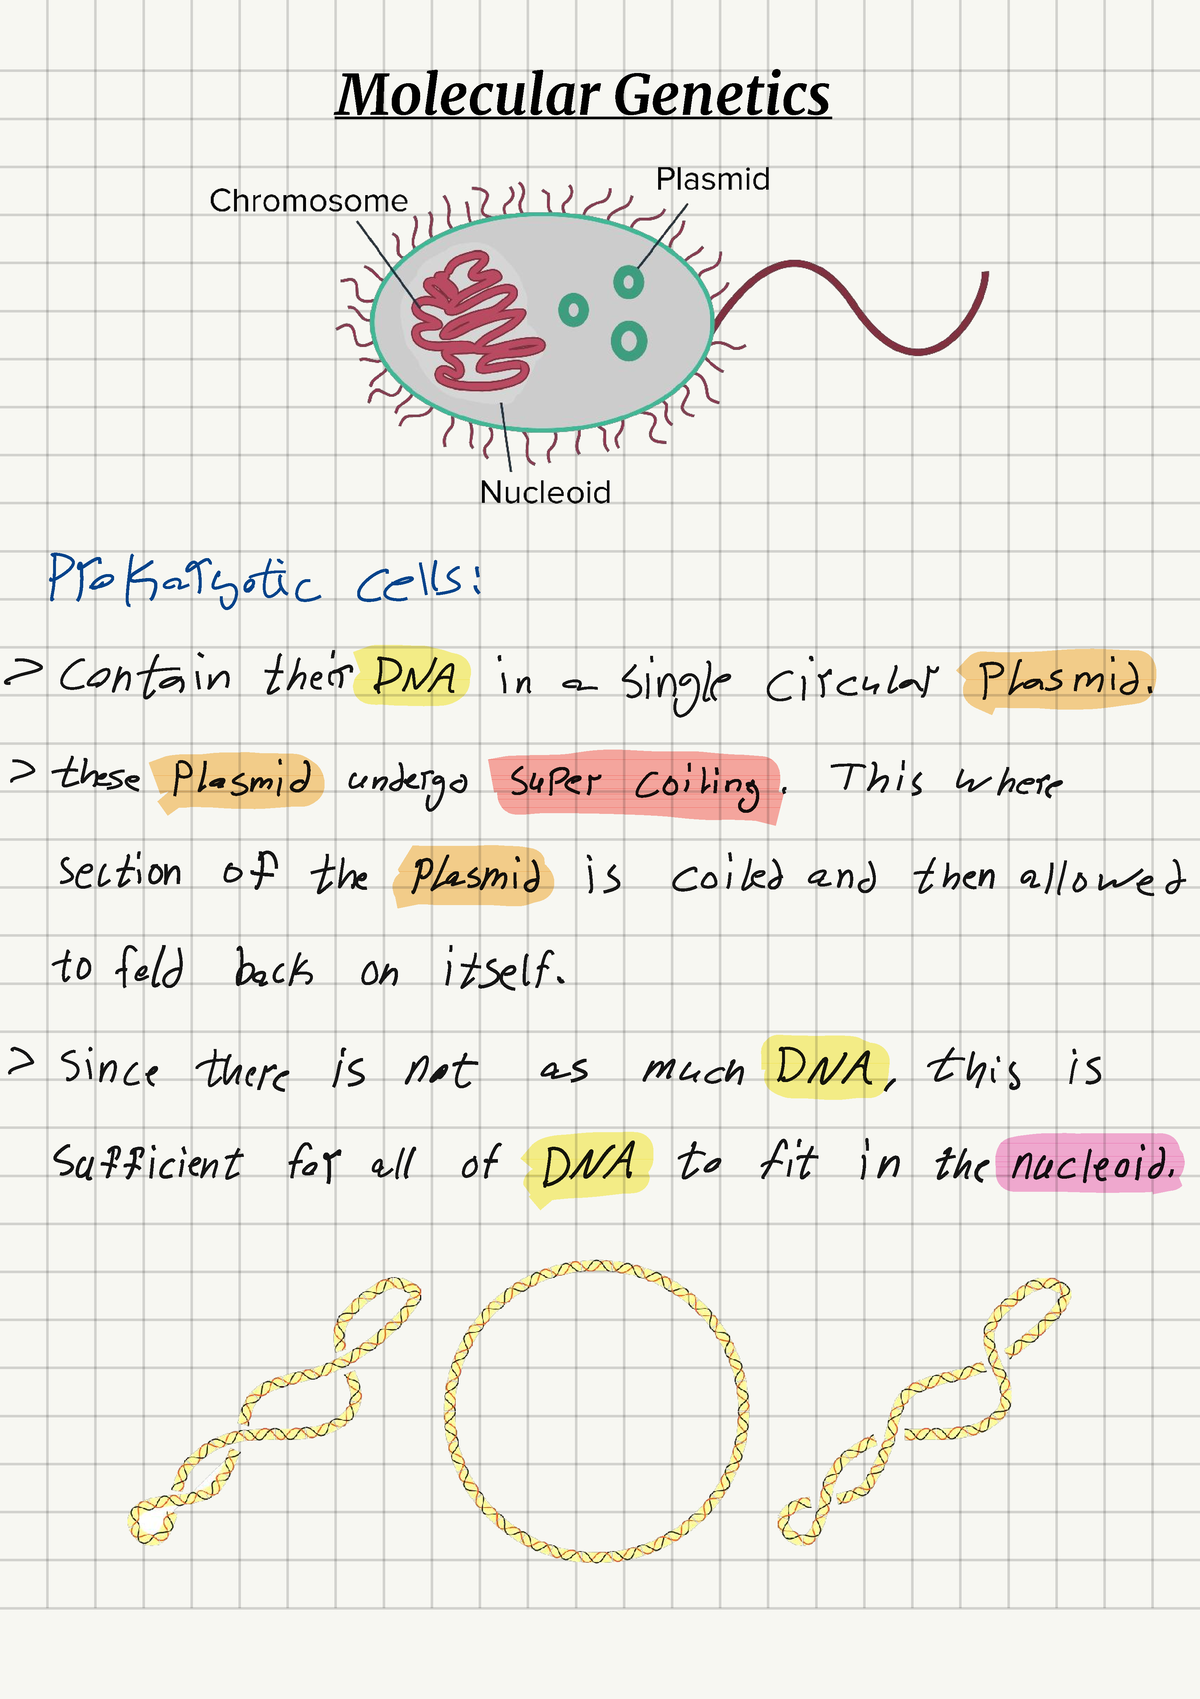 Molecular Genetics
Plasmid
Chromosome
Nucleoid
Prokaryotic cells:
> Contain their DNA in a single circular Plasmid.
> these Plasmid undergo super coiling. This where
section of the Plasmid is coiled and then allowed
to fold back on itself.
> Since there is not as much DNA, this is
sufficient for all of DNA to fit in the nucleoid.